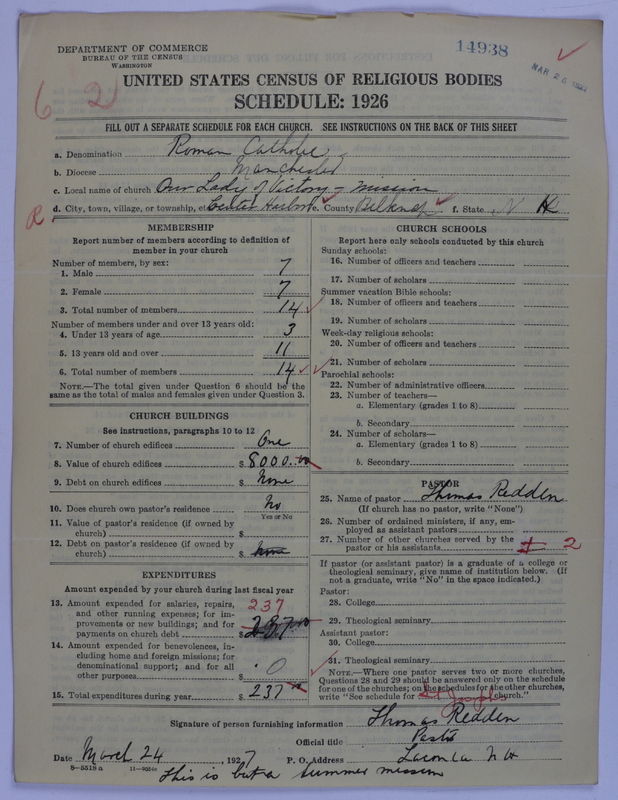 DEPARTMENT OF COMMERCE
BUREAU OF THE CENSUS
WASHINGTON
14938
MAR 26
6 2
UNITED STATES CENSUS OF RELIGIOUS BODIES
SCHEDULE: 1926
FILL OUT A SEPARATE SCHEDULE FOR EACH CHURCH. SEE INSTRUCTIONS ON THE BACK OF THIS SHEET
a. Denomination Roman Catholic
b. Diocese Manchester
c. Local name of church Our Lady of Victory – mission
R
d. City, town, village, or township, etc Center Harbor e. County Belknap f. State N H
MEMBERSHIP
Report number of members according to definition of
member in your church
Number of members, by sex:
1. Male 7
2. Female 7
3. Total number of members 14
Number of members under and over 13 years old:
4. Under 13 years of age 3
5. 13 years old and over 11
6. Total number of members 14
NOTE.—The total given under Question 6 should be the
same as the total of males and females given under Question 3.
CHURCH BUILDINGS
See instructions, paragraphs 10 to 12
7. Number of church edifices One
8. Value of church edifices $ 8000.00
9. Debt on church edifices $ None
10. Does church own pastor's residence No
Yes or No
11. Value of pastor's residence (if owned by
church) $
12. Debt on pastor's residence (if owned by
church) $ none
EXPENDITURES
Amount expended by your church during last fiscal year
13. Amount expended for salaries, repairs,
and other running expenses; for im-
provements or new buildings; and for
payments on church debt $ 237
237.00
14. Amount expended for benevolences, in-
cluding home and foreign missions; for
denominational support; and for all
other purposes $ 0
15. Total expenditures during year $ 237.00
CHURCH SCHOOLS
Report here only schools conducted by this church
Sunday schools:
16. Number of officers and teachers
17. Number of scholars
Summer vacation Bible schools:
18. Number of officers and teachers
19. Number of scholars
Week-day religious schools:
20. Number of officers and teachers
21. Number of scholars
Parochial schools:
22. Number of administrative officers
23. Number of teachers—
a. Elementary (grades 1 to 8)
b. Secondary
24. Number of scholars—
a. Elementary (grades 1 to 8)
b. Secondary
PASTOR
25. Name of pastor Thomas Redden
(If church has no pastor, write "None")
26. Number of ordained ministers, if any, em-
ployed as assistant pastors
27. Number of other churches served by the
pastor or his assistants 2
If pastor (or assistant pastor) is a graduate of a college or
theological seminary, give name of institution below. (If
not a graduate, write "No" in the space indicated.)
Pastor:
28. College
29. Theological seminary
Assistant pastor:
30. College
31. Theological seminary
NOTE.—Where one pastor serves two or more churches,
Questions 28 and 29 should be answered only on the schedule
for one of the churches; on the schedules for the other churches,
write "See schedule for St Joseph's church."
Signature of person furnishing information Thomas Redden
Official title Pastor
Date March 24, 1927 P. O. Address Laconia N H
8-5518 a
This is but a summer mission